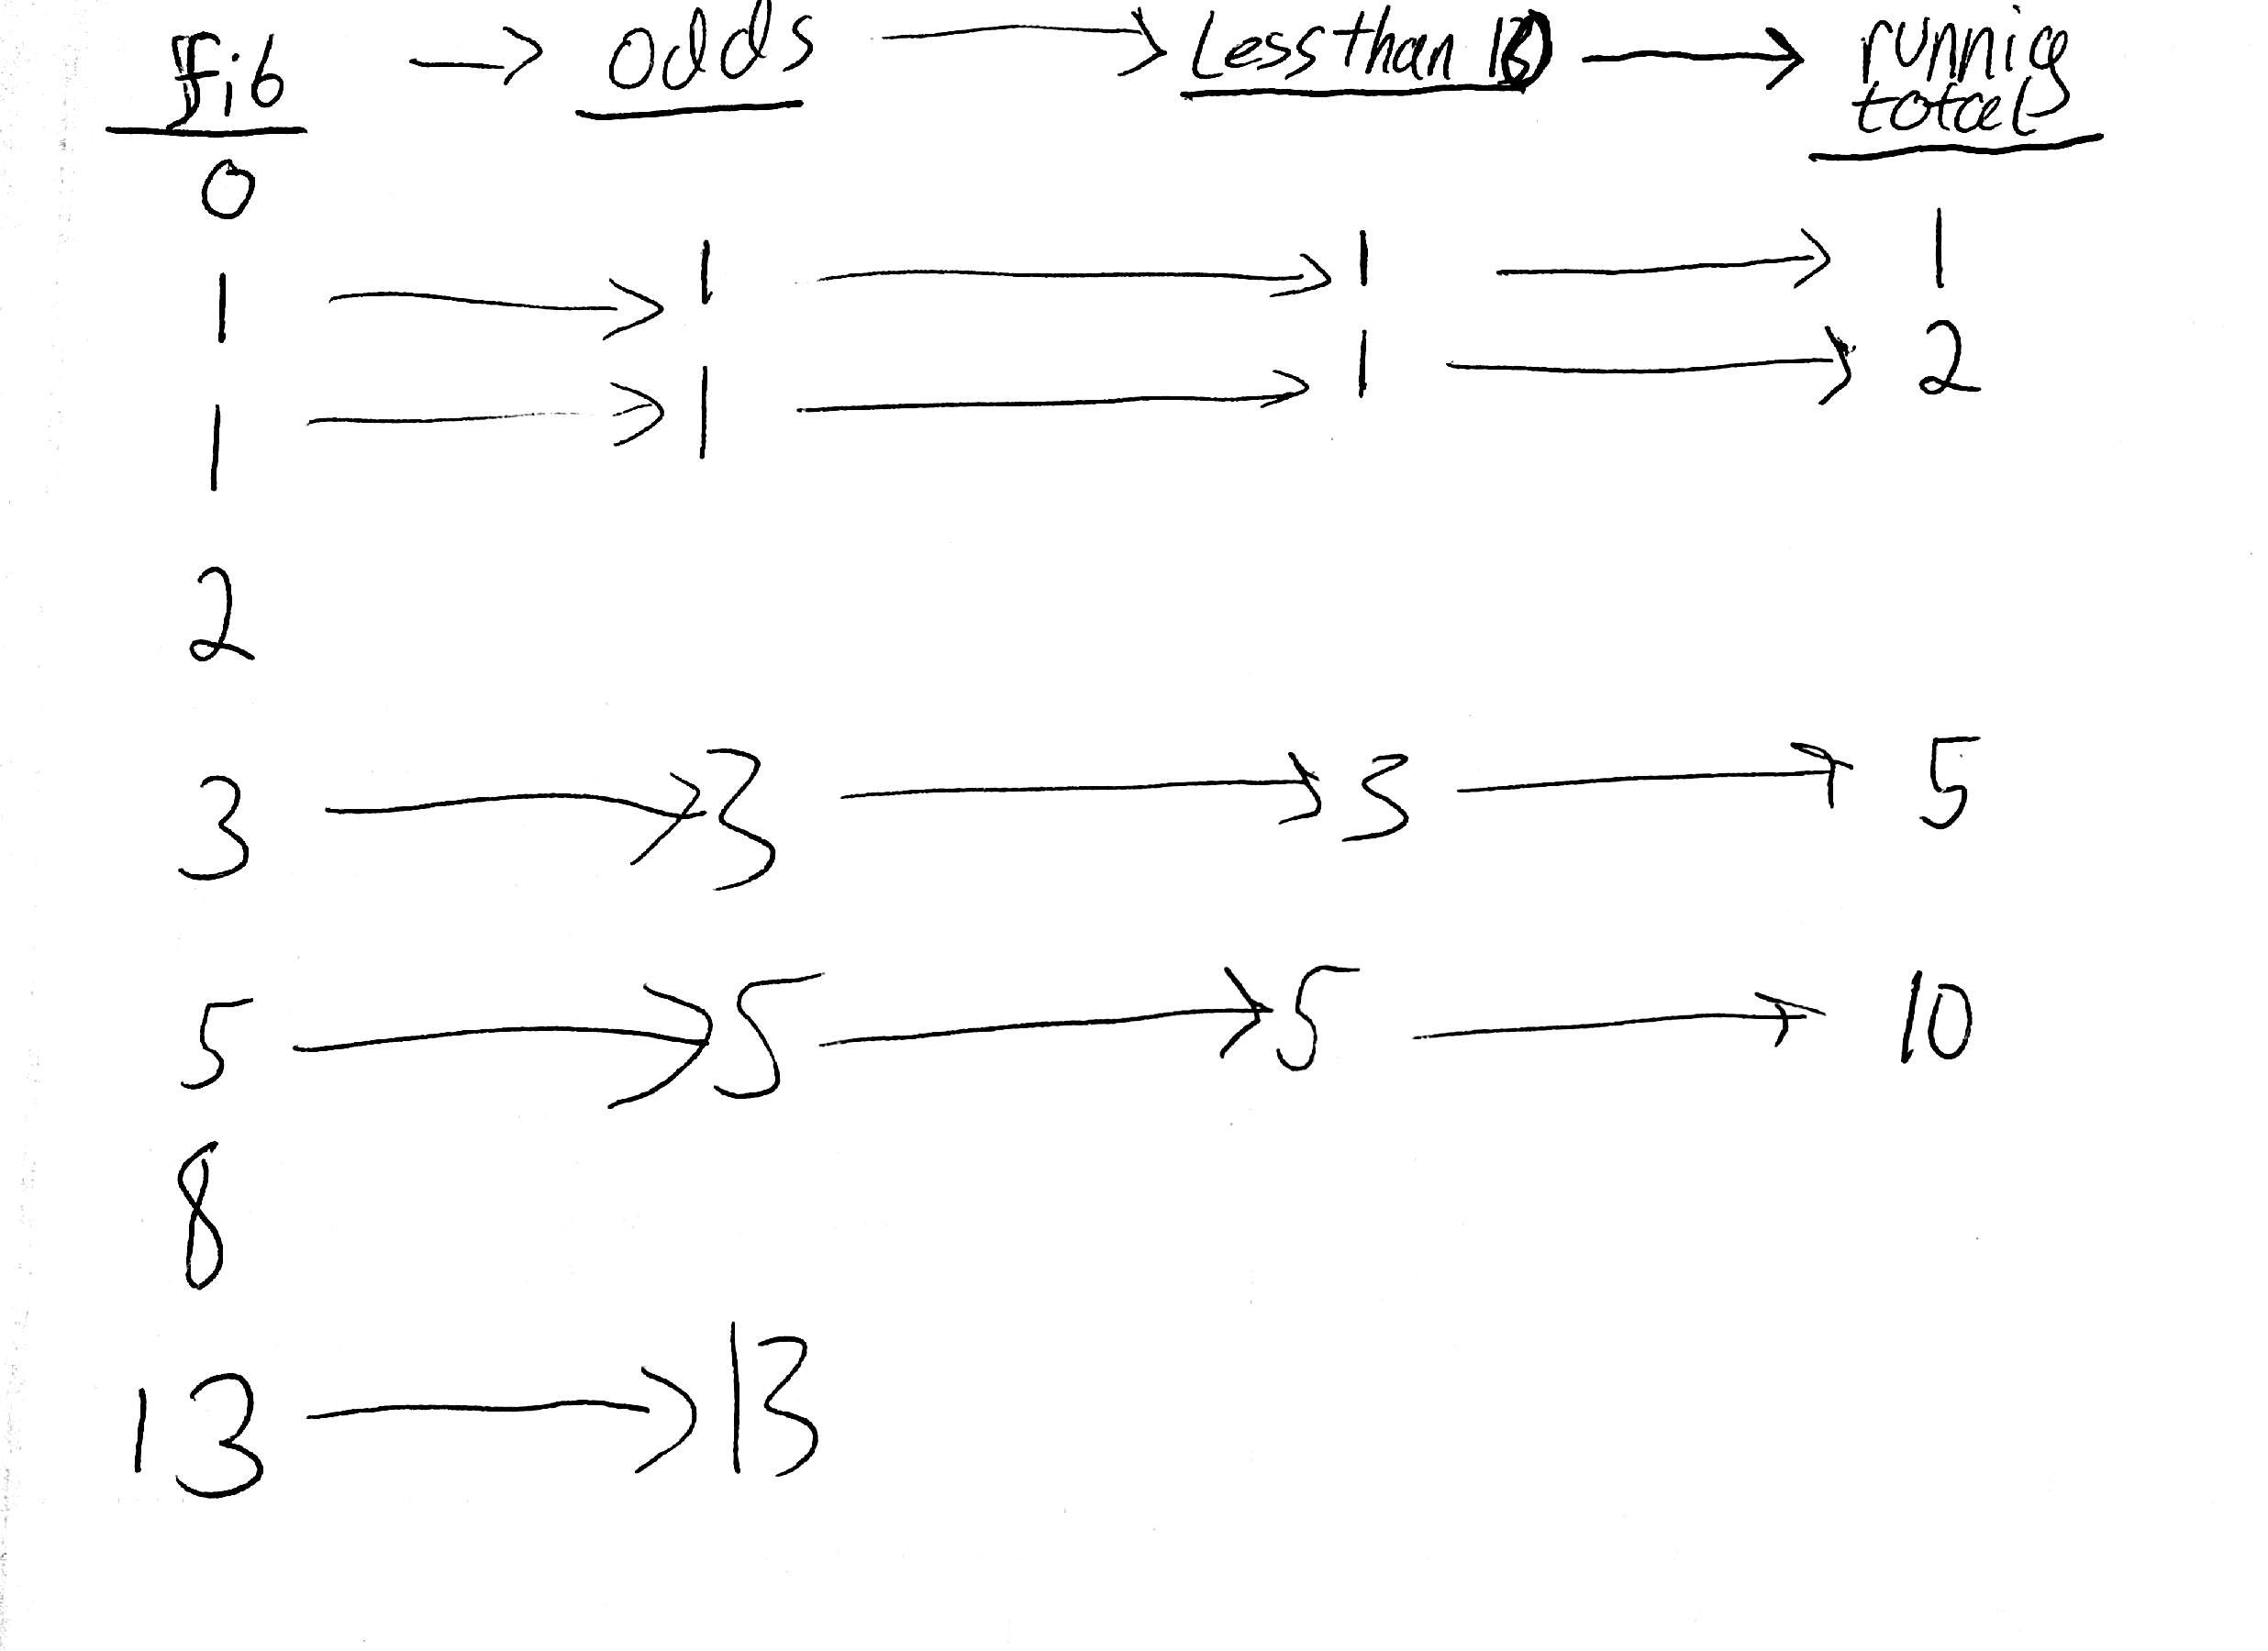 fib → odds → Less than 10 → runnig
total
0
1 → 1 → 1 → 1
1 → 1 → 1 → 2
2
3 → 3 → 3 → 5
5 → 5 → 5 → 10
8
13 → 13